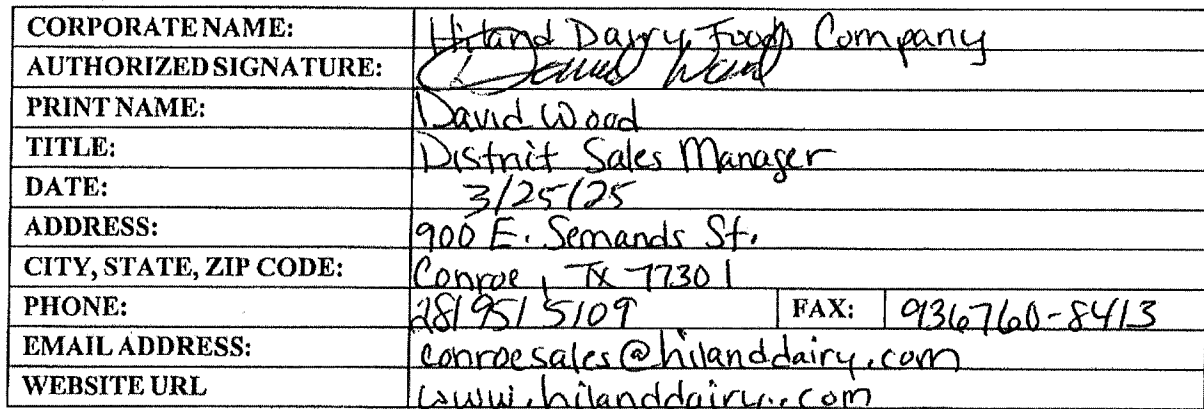 CORPORATE NAME: Hiland Dairy Foods Company
AUTHORIZED SIGNATURE: David Wood
PRINT NAME: David Wood
TITLE: District Sales Manager
DATE: 3/25/25
ADDRESS: 900 E. Semands St.
CITY, STATE, ZIP CODE: Conroe, TX 77301
PHONE: 281 951 5109 FAX: 936 760-8413
EMAIL ADDRESS: conroesales@hilanddairy.com
WEBSITE URL www.hilanddairy.com